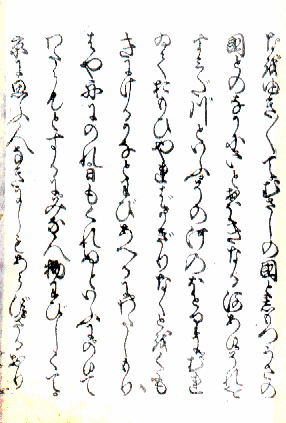 なをゆき〱てむさしの国としもつふさの
国とのなかにいとおほきなる河ありそれを
すみだ川といふその川のほとりにむれ
ゐておもひやればかぎりなくとをくも
きにけるかなとわびあへるにわたしもり
はや舟にのれ日もくれぬといふにのりて
わたらんとするにみな人物わびしくて
京に思ふ人なきにしもあらずさるおり